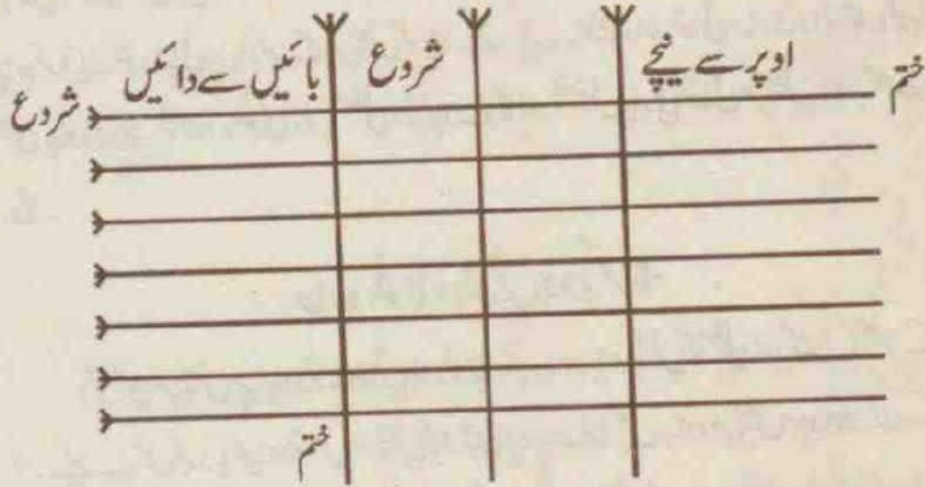 اوپر سے نیچے
شروع
بائیں سے دائیں
ختم
شروع
ختم